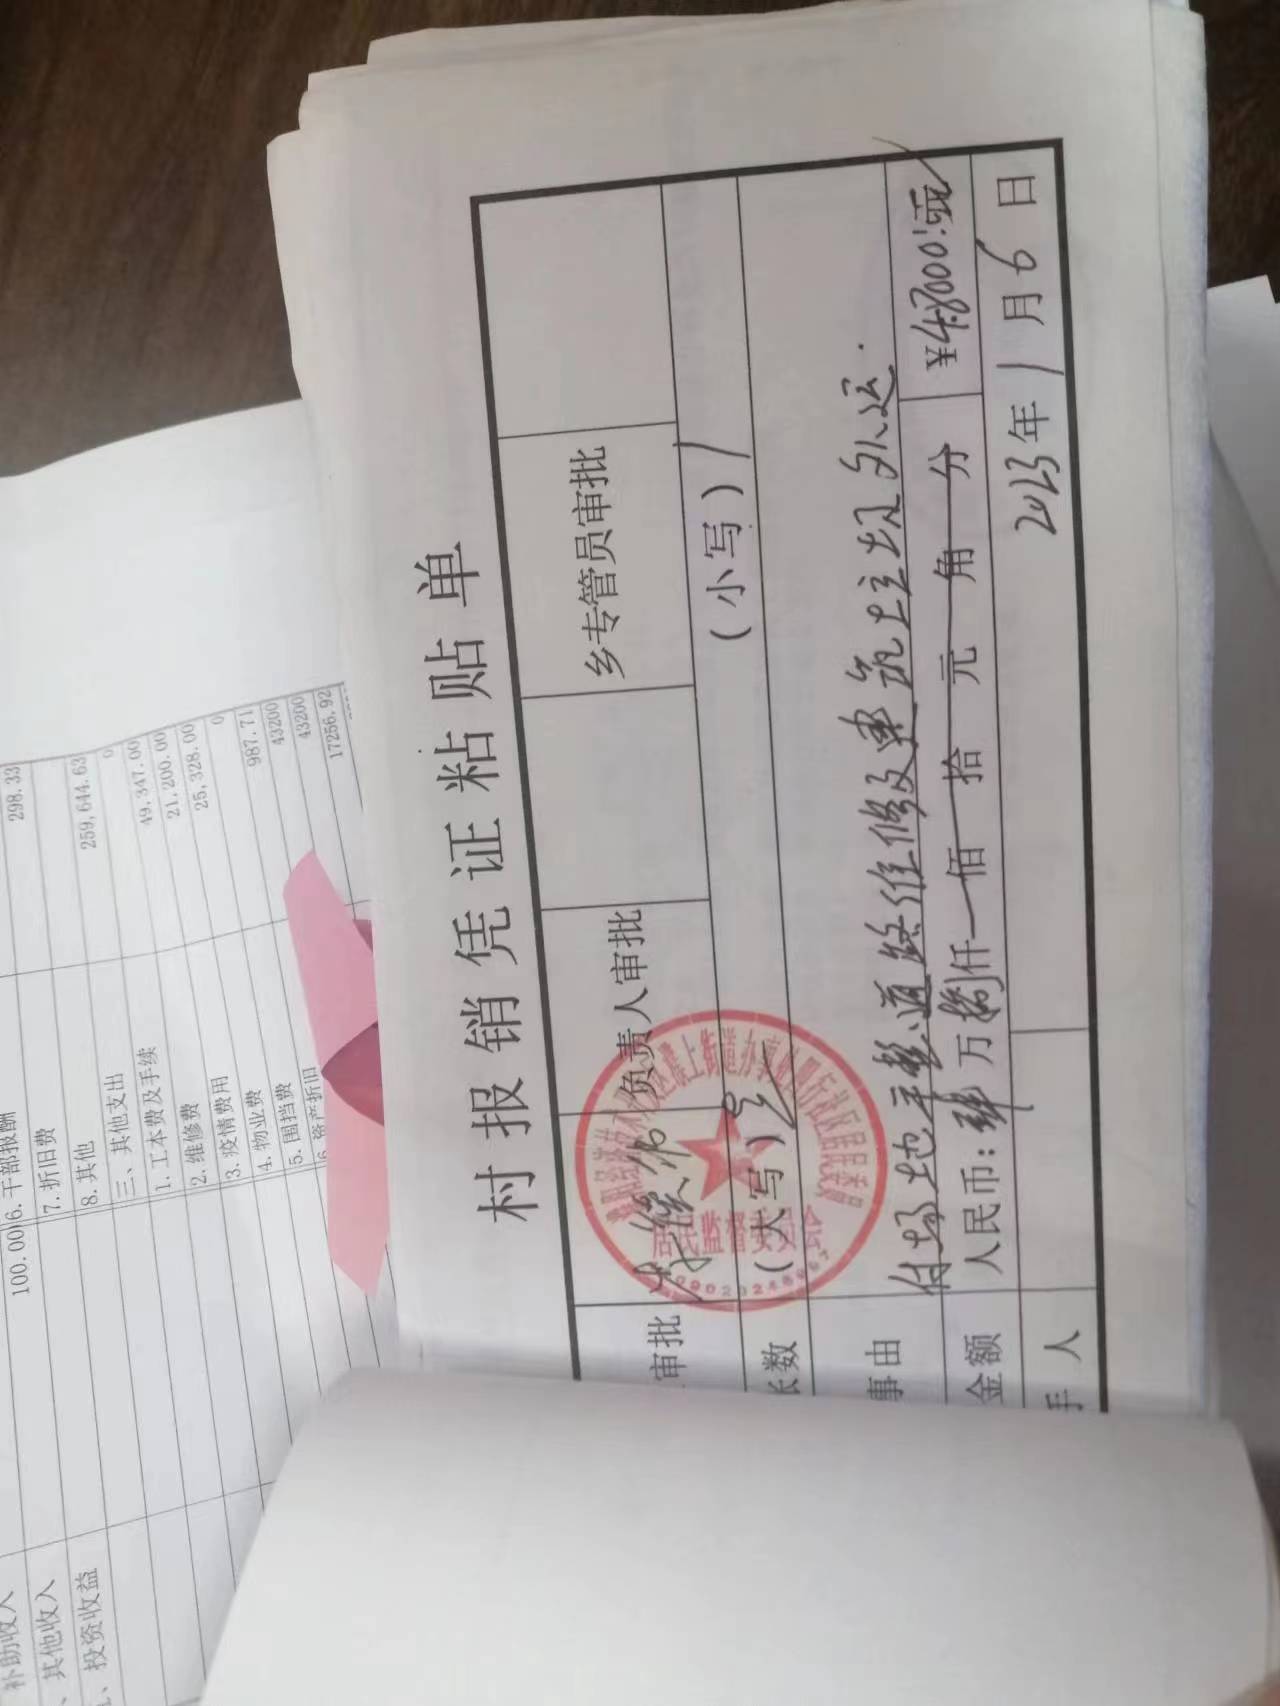 村报销凭证粘贴单
审批
负责人审批
乡专管员审批
张数
(大写)
(小写)
事由
付场地平整、道路维修及建筑土垃圾外运.
金额
人民币: 肆万捌仟 佰 拾 元 角 分
¥48000元
手人
2023年1月6日
居民监督委员会
298.33
100.00
6.干部报酬
7.折旧费
8.其他
259,644.63
三、其他支出
0
1.工本费及手续
49,347.00
2.维修费
21,200.00
3.疫情费用
25,328.00
4.物业费
0
5.围挡费
987.71
6.资产折旧
43200
43200
17256.92
补助收入
、其他收入
、投资收益